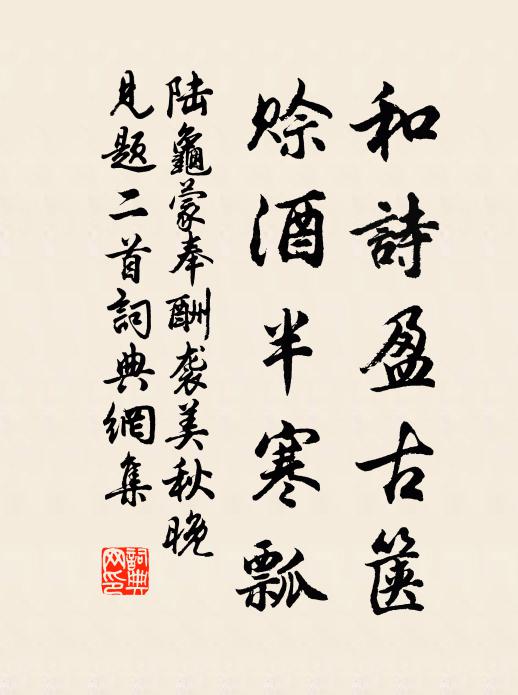 和詩盈古箧
賒酒半寒瓢
陆龜蒙奉酬袭美秋晚
見題二首詞典網集
詞典网印